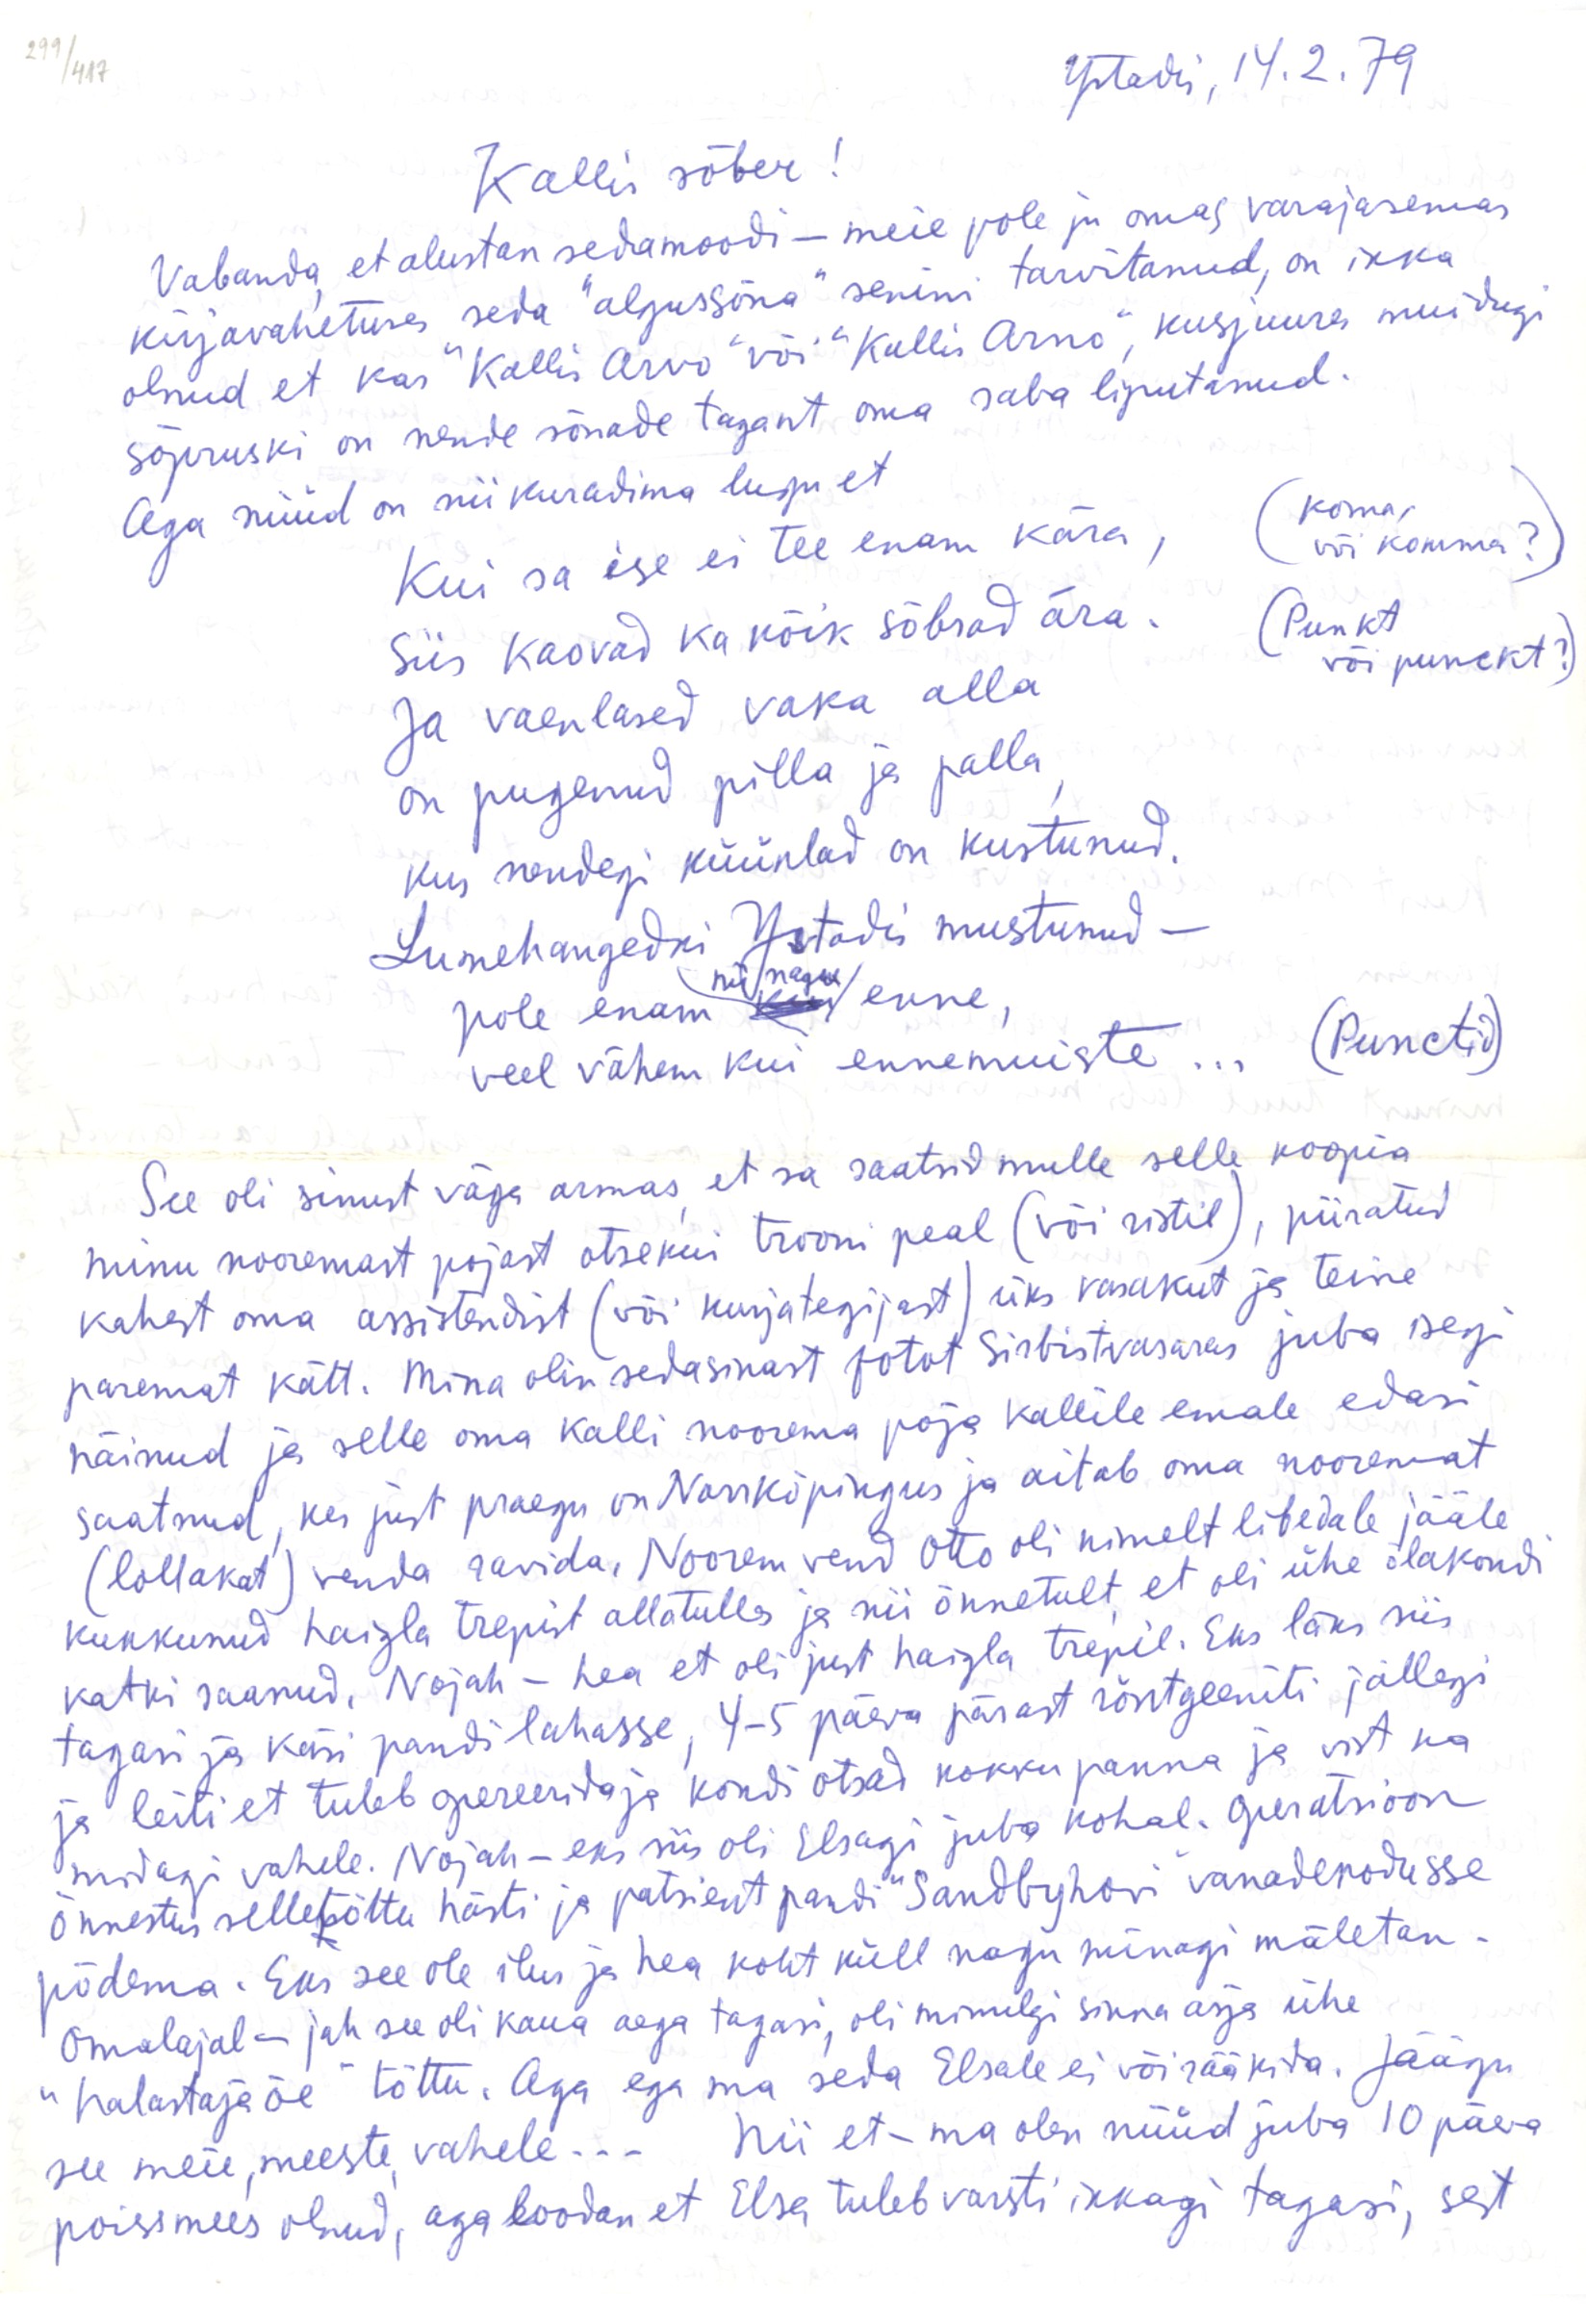 299/417
Ystadis, 14.2.79
Kallis sõber!
Vabanda, et alustan sedamoodi – meie pole ju omas varajasemas
kirjavahetuses seda "algussõna" senini tarvitanud, on ikka
olnud et kas "Kallis Arvo" või "Kallis Arno", kusjuures muidugi
sõpruski on nende sõnade tagant oma saba liputanud.
Aga nüüd on nii kuradima lugu et
Kui sa ise ei tee enam kära, (koma, või komma?)
Siis kaovad ka kõik sõbrad ära. (Punkt või punckt?)
Ja vaenlased vaka alla
on pugenud pilla ja palla,
kus nendegi küünlad on kustunud.
Lumehangedki Ystadis mustunud –
pole enam nii nagu enne,
veel vähem kui ennemuiste ... (Punctid)
See oli sinust väga armas, et sa saatsid mulle selle koopia
minu nooremast pojast otsekui trooni peal (või ristil), piiratud
kahest oma assistendist (või kurjategijast) üks vasakut ja teine
paremat kätt. Mina olin sedasinast fotot Sirbistvasaras juba isegi
näinud ja selle oma kalli noorema poja kallile emale edasi
saatnud, kes just praegu on Norrköpingus ja aitab oma nooremat
(lollakat) venda ravida. Noorem vend Otto oli nimelt libedale jääle
kukkunud haigla trepist allatulles ja nii õnnetult, et oli ühe õlakondi
katki saanud. Nojah – hea et oli just haigla trepil. Eks läks siis
tagasi ja käsi pandi lahasse, 4-5 päeva pärast röntgeeniti jällegi
ja leiti et tuleb opereerida ja kondi otsad kokku panna ja vist ka
midagi vahele. Nojah – eks siis oli Elsagi juba kohal. Operatsioon
õnnestus selletõttu hästi ja patsient pandi "Sandbyhovi" vanadekodusse
põdema. Eks see ole ilus ja hea koht küll nagu minagi mäletan.
Omalajal – jah see oli kaua aega tagasi, oli minulgi sinna asja ühe
"halastajaõe" tõttu. Aga ega ma seda Elsale ei või rääkida. Jäägu
see meie, meeste, vahele... Nii et – ma olen nüüd juba 10 päeva
poissmees olnud, aga loodan et Elsa tuleb varsti ikkagi tagasi, sest